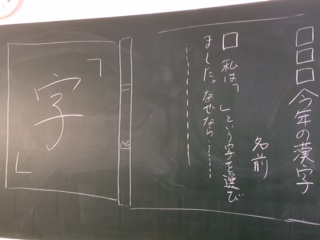 □□□今年の漢字
名前
□私は「　」という字を選び
ました。なぜなら……
「字」